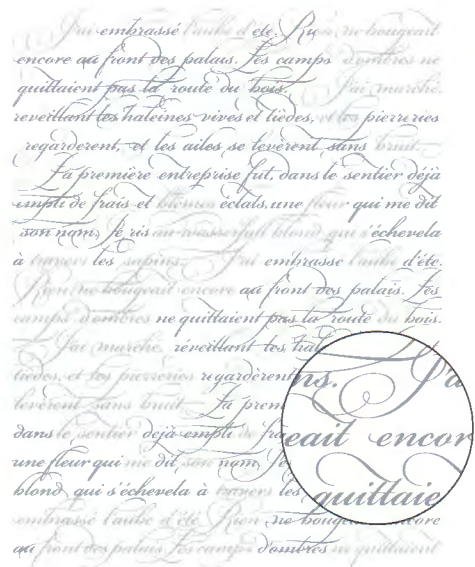 J'ai embrassé l'aube d'été. Rien ne bougeait
encore au front des palais. Les camps d'ombres ne
quittaient pas la route du bois. J'ai marché,
reveillant les haleines vives et tièdes, et les pierreries
regardèrent, et les ailes se levèrent sans bruit.
La première entreprise fut, dans le sentier déjà
empli de frais et blêmes éclats, une fleur qui me dit
son nom. Je ris au wasserfall blond qui s'échevela
à travers les sapins. J'ai embrasse l'aube d'été.
Rien ne bougeait encore au front des palais. Les
camps d'ombres ne quittaient pas la route du bois.
J'ai marché, réveillant les hal
tièdes, et les pierreries regardèrent
levèrent sans bruit. La prem
dans le sentier déjà empli de fra
une fleur qui me dit son nom. Je
blond qui s'échevela à travers les
embrassé l'aube d'été. Rien ne bougeait encore
au front des palais. Les camps d'ombres ne quittaient
ns. J'a
eait encor
quittaie